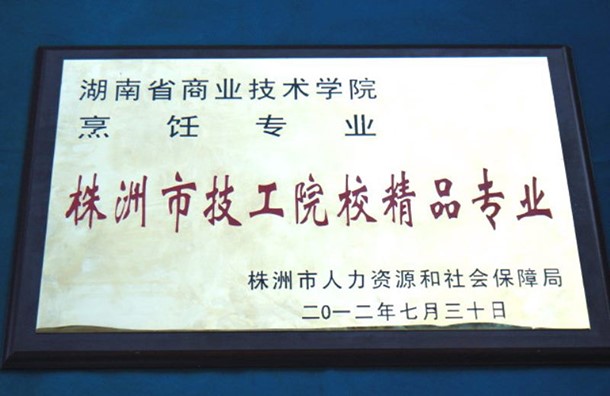 湖南省商业技术学院
烹饪专业
株洲市技工院校精品专业
株洲市人力资源和社会保障局
二0一二年七月三十日